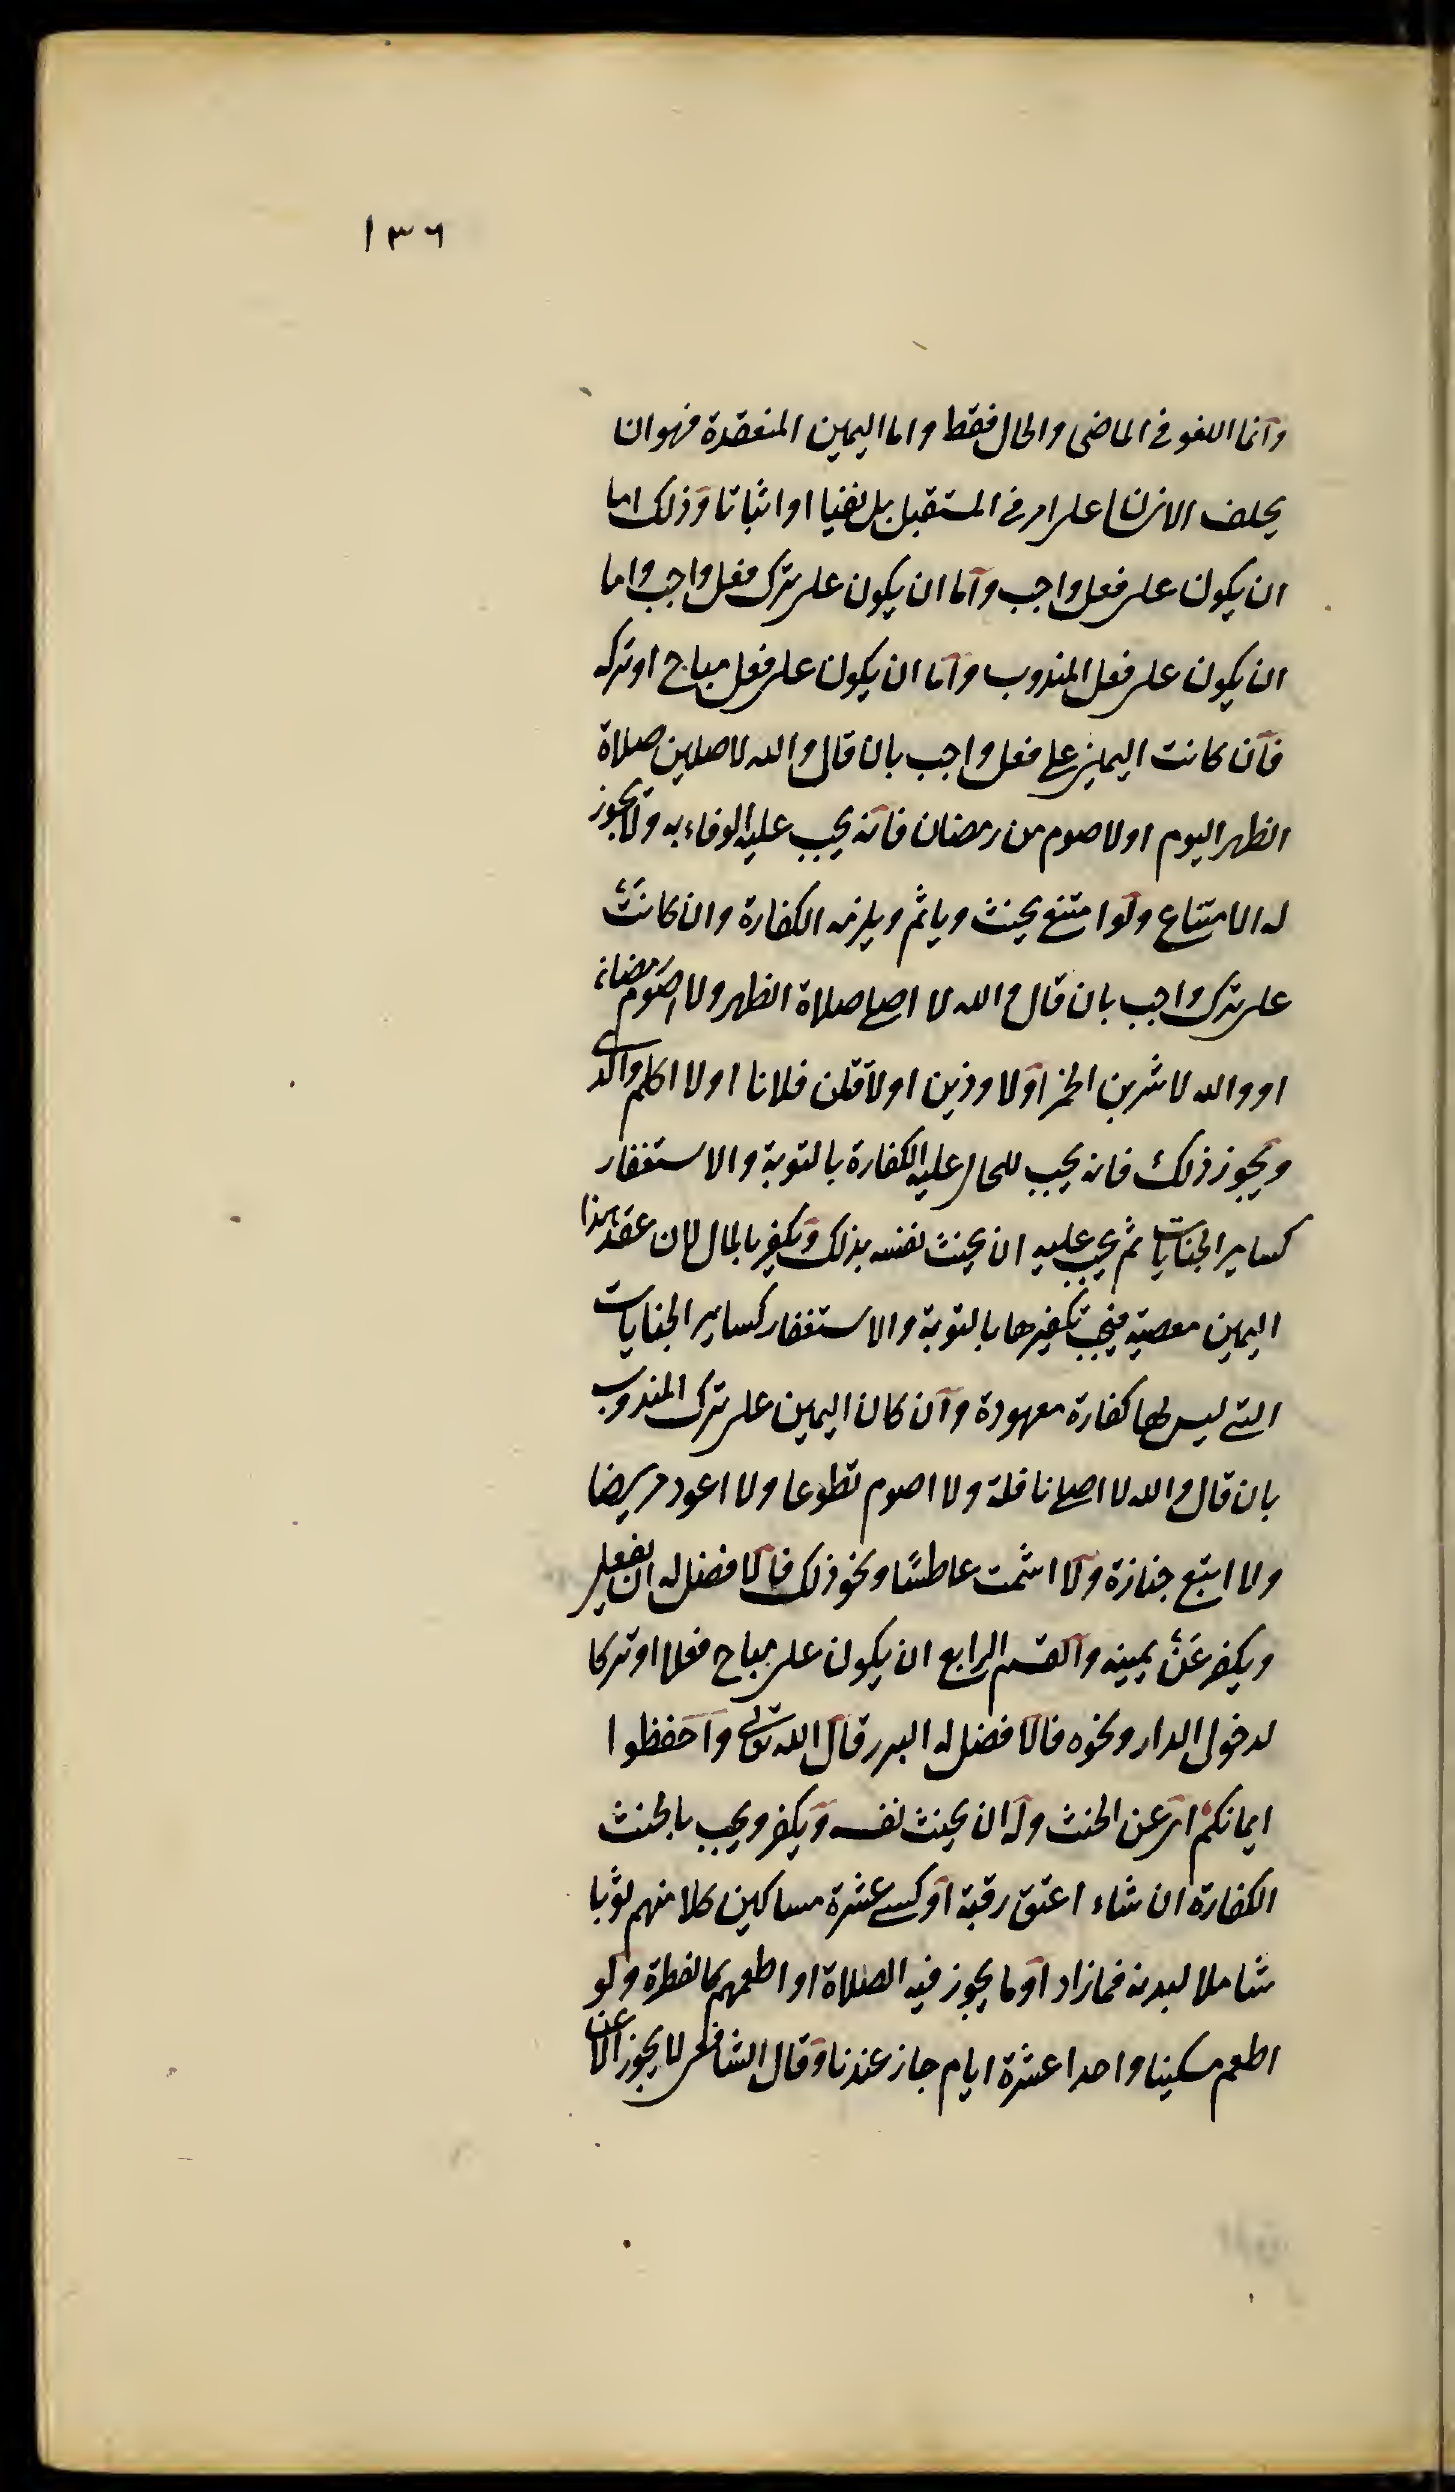 ١٣٦
وانما اللغو في الماضى والحال فقط واما اليمين المنعقدة فهو ان
يحلف الانسان على امر في المستقبل نفيا او اثباتا وذلك اما
ان يكون على فعل واجب واما ان يكون على ترك فعل واجب واما
ان يكون على فعل المندوب واما ان يكون على فعل مباح او تركه
فان كانت اليمين على فعل واجب بان قال والله لاصلين صلاة
الظهر اليوم او لاصوم من رمضان فانه يجب عليه الوفاء به ولا يجوز
له الامتناع ولو امتنع يحنث وياثم ويلزمه الكفارة وان كانت
على ترك واجب بان قال والله لا اصلى صلاة الظهر ولا اصوم رمضان
او والله لاشربن الخمر او لا وذين او لاقتلن فلانا او لا اكلم والدى
ويجوز ذلك فانه يجب للحال عليه الكفارة بالتوبة والاستغفار
كساير الجنايات ثم يجب عليه ان يحنث نفسه بذلك ويكفر بالمال لان عقد هذا
اليمين معصية فيجب تكفيرها بالتوبة والاستغفار كساير الجنايات
التى ليس لها كفارة معهودة وان كان اليمين على ترك المندوب
بان قال والله لا اصلى نافلة ولا اصوم تطوعا ولا اعود مريضا
ولا اتبع جنازة ولا اشمت عاطسًا ونحو ذلك فالافضل له ان يفعل
ويكفر عن يمينه والقسم الرابع ان يكون على مباح فعلا او تركا
لدخول الدار ونحوه فالافضل له البر قال الله تعالى واحفظوا
ايمانكم اى عن الحنث وله ان يحنث نفسه ويكفر ويجب بالحنث
الكفارة ان شاء اعتق رقبة او كسى عشرة مساكين كلا منهم ثوبا
شاملا لبدنه فمازاد او ما يجوز فيه الصلاة او اطعمهم كالفطرة ولو
اطعم مسكينا واحدا عشرة ايام جاز عندنا وقال الشافعى لا يجوز الا عن